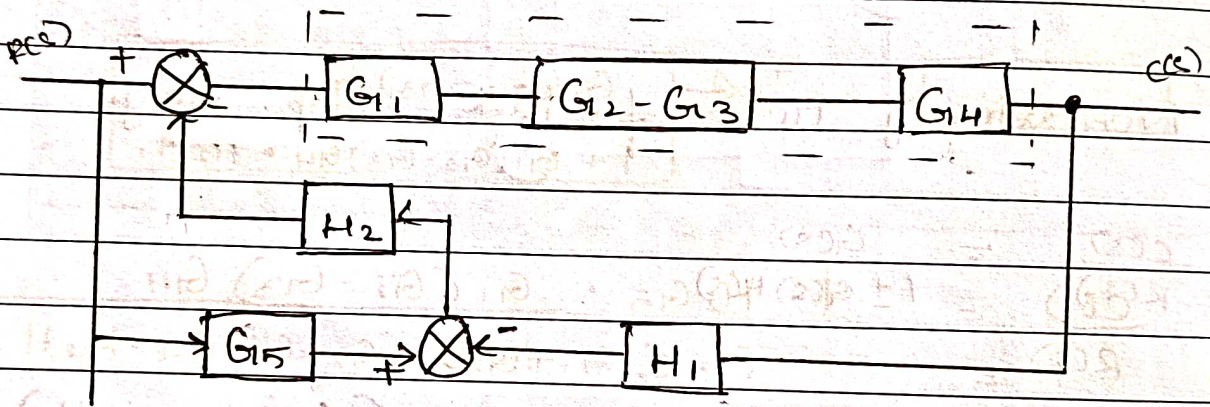 R(s) + - G1 G2 - G3 G4 C(s)
H2
G5 + - H1